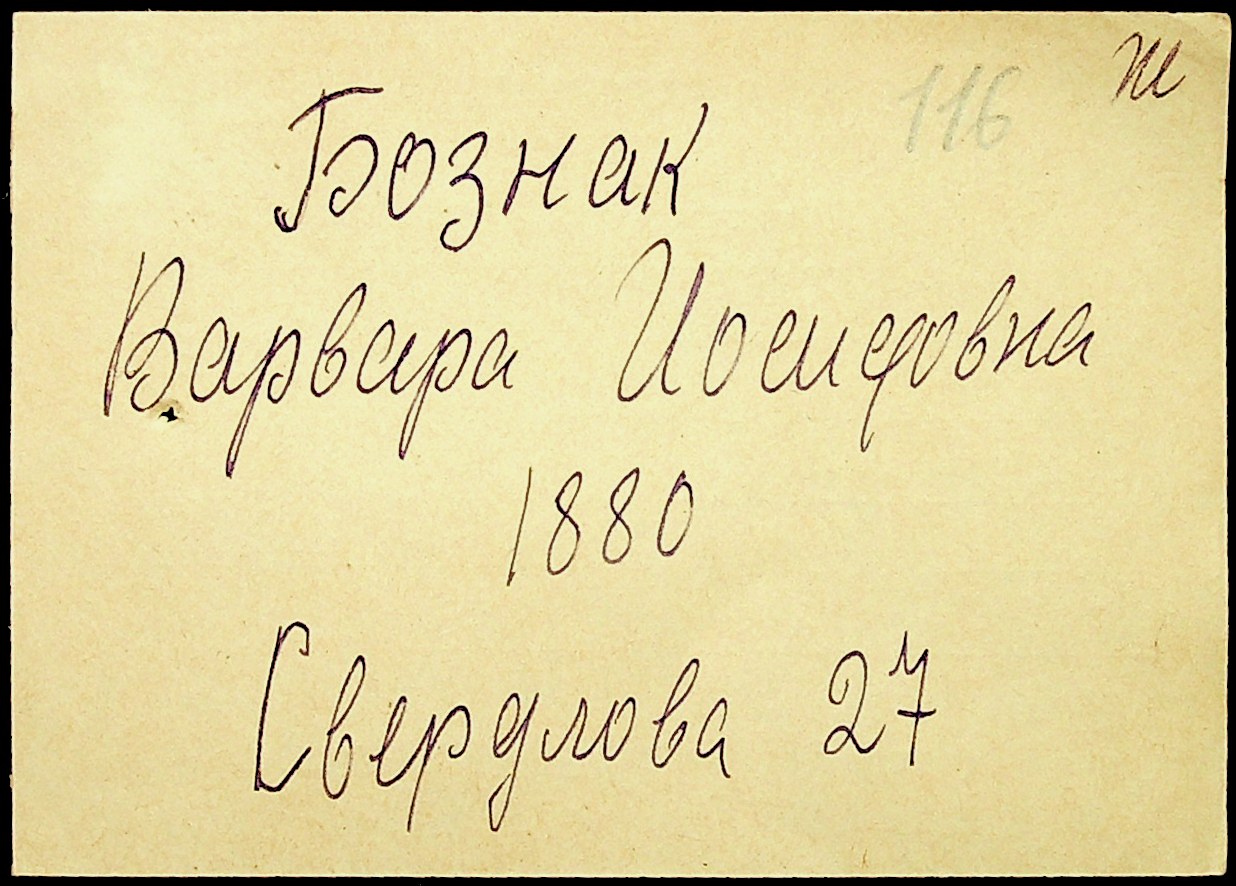 116 ж
Бознак
Варвара Иосифовна
1880
Свердлова 27